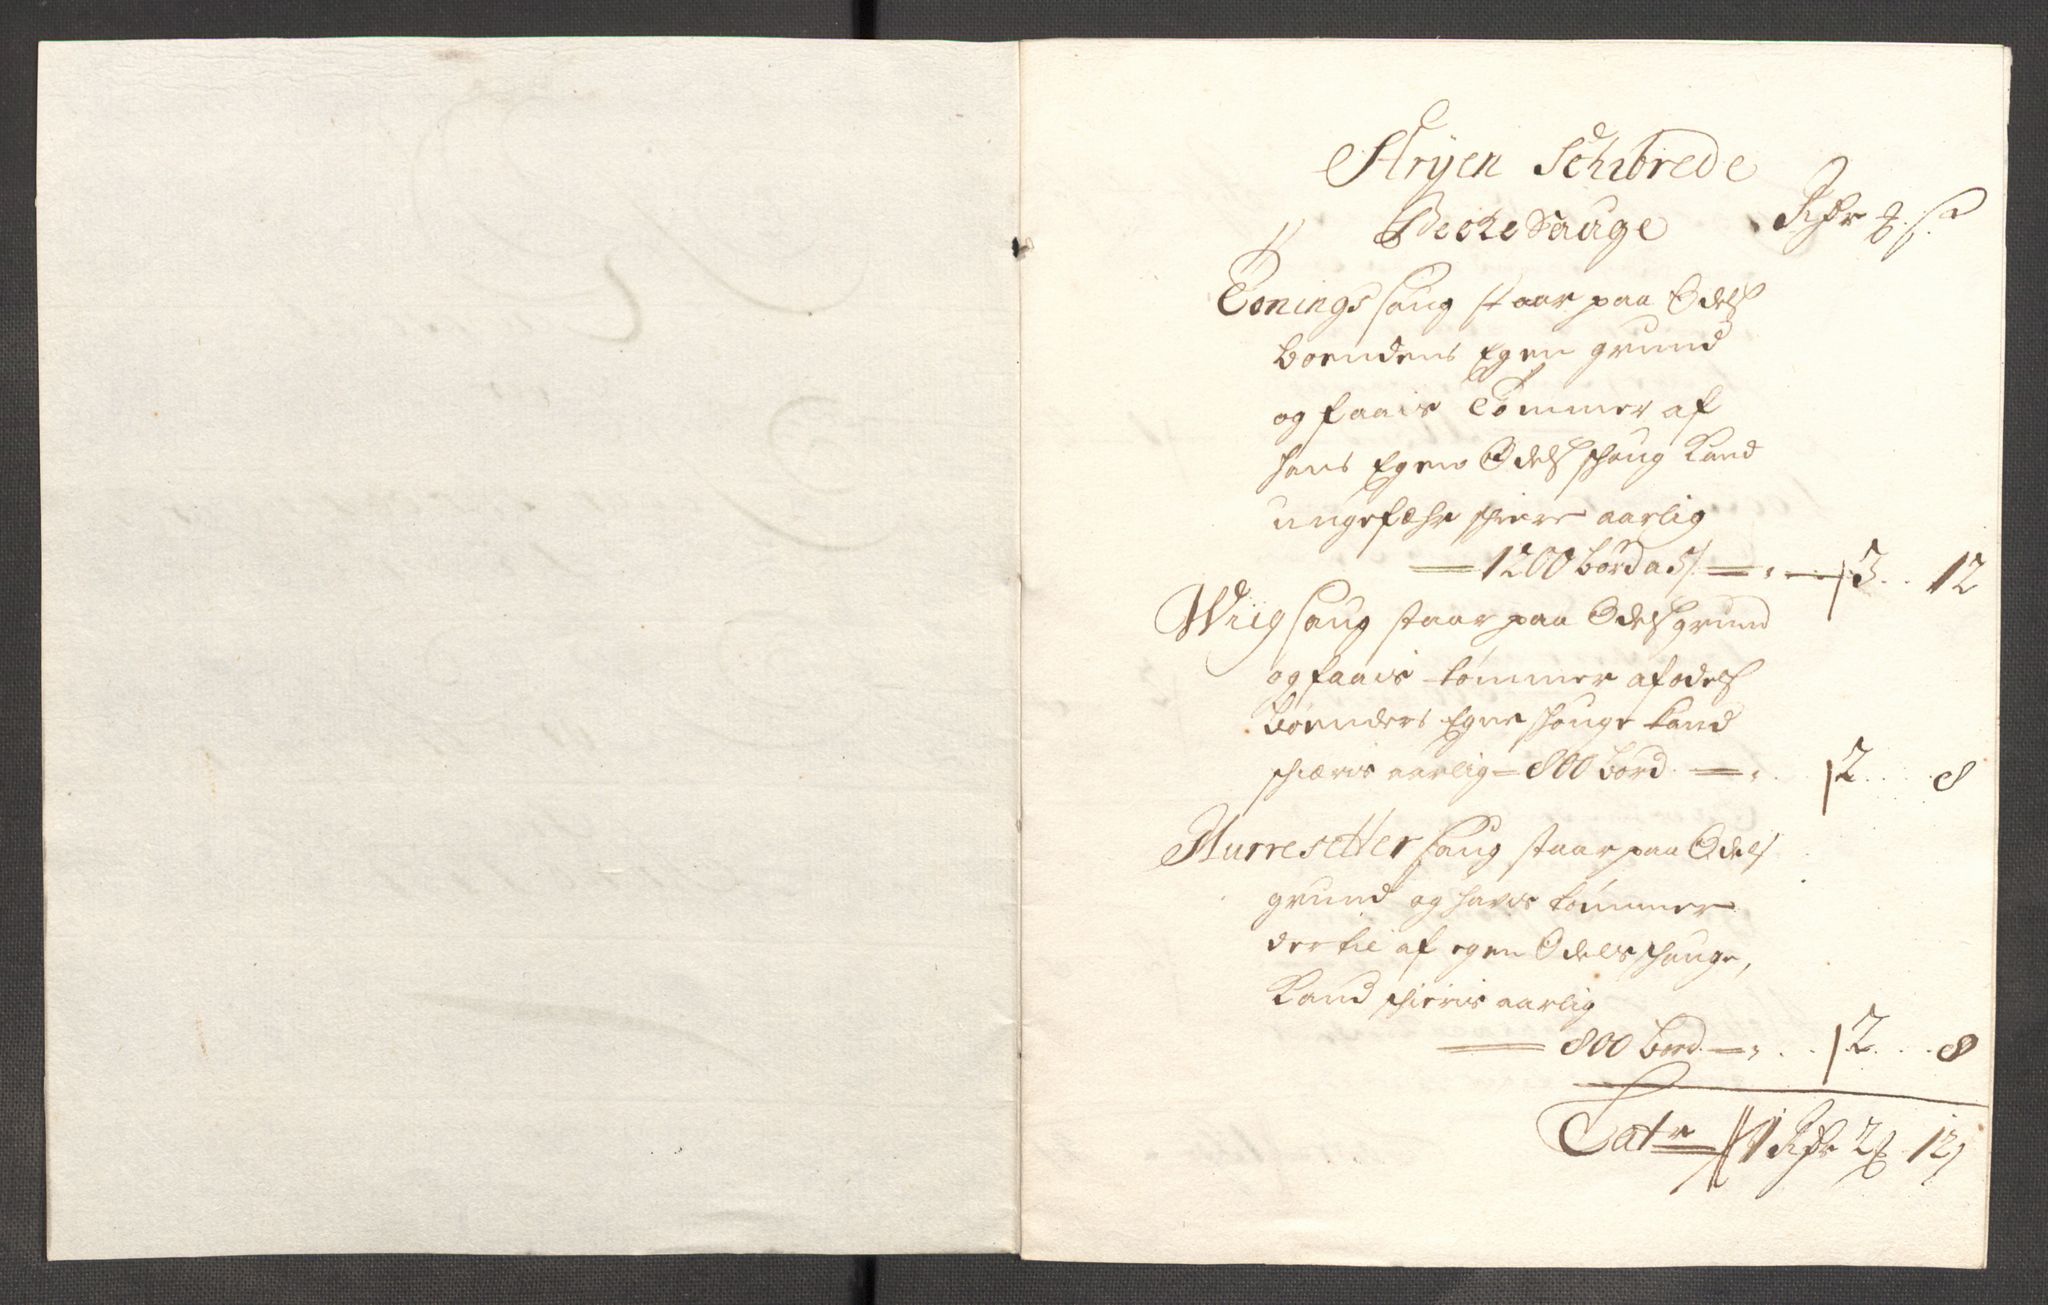 Stryen Schibrede
Becke Sauge Rdr ß
Tonings Saug staar paa Odels
boendens Egen grund
og faais Tømmer af
hans Egen Odels schoug Kand
ungefæhr schiere aarlig
1200 bord a 5/ 3 12
Wiig Saug staar paa Odels grund
og faais tømmer af odels
bøenders Egne schouge kand
schiæris aarlig 800 bord 2 8
Murresetter Saug staar paa Odels
grund og haves tømmer
der til af egen Odels schouge,
Kand schieris aarlig
800 bord 2 8
Latr 1 Rdr 2 12